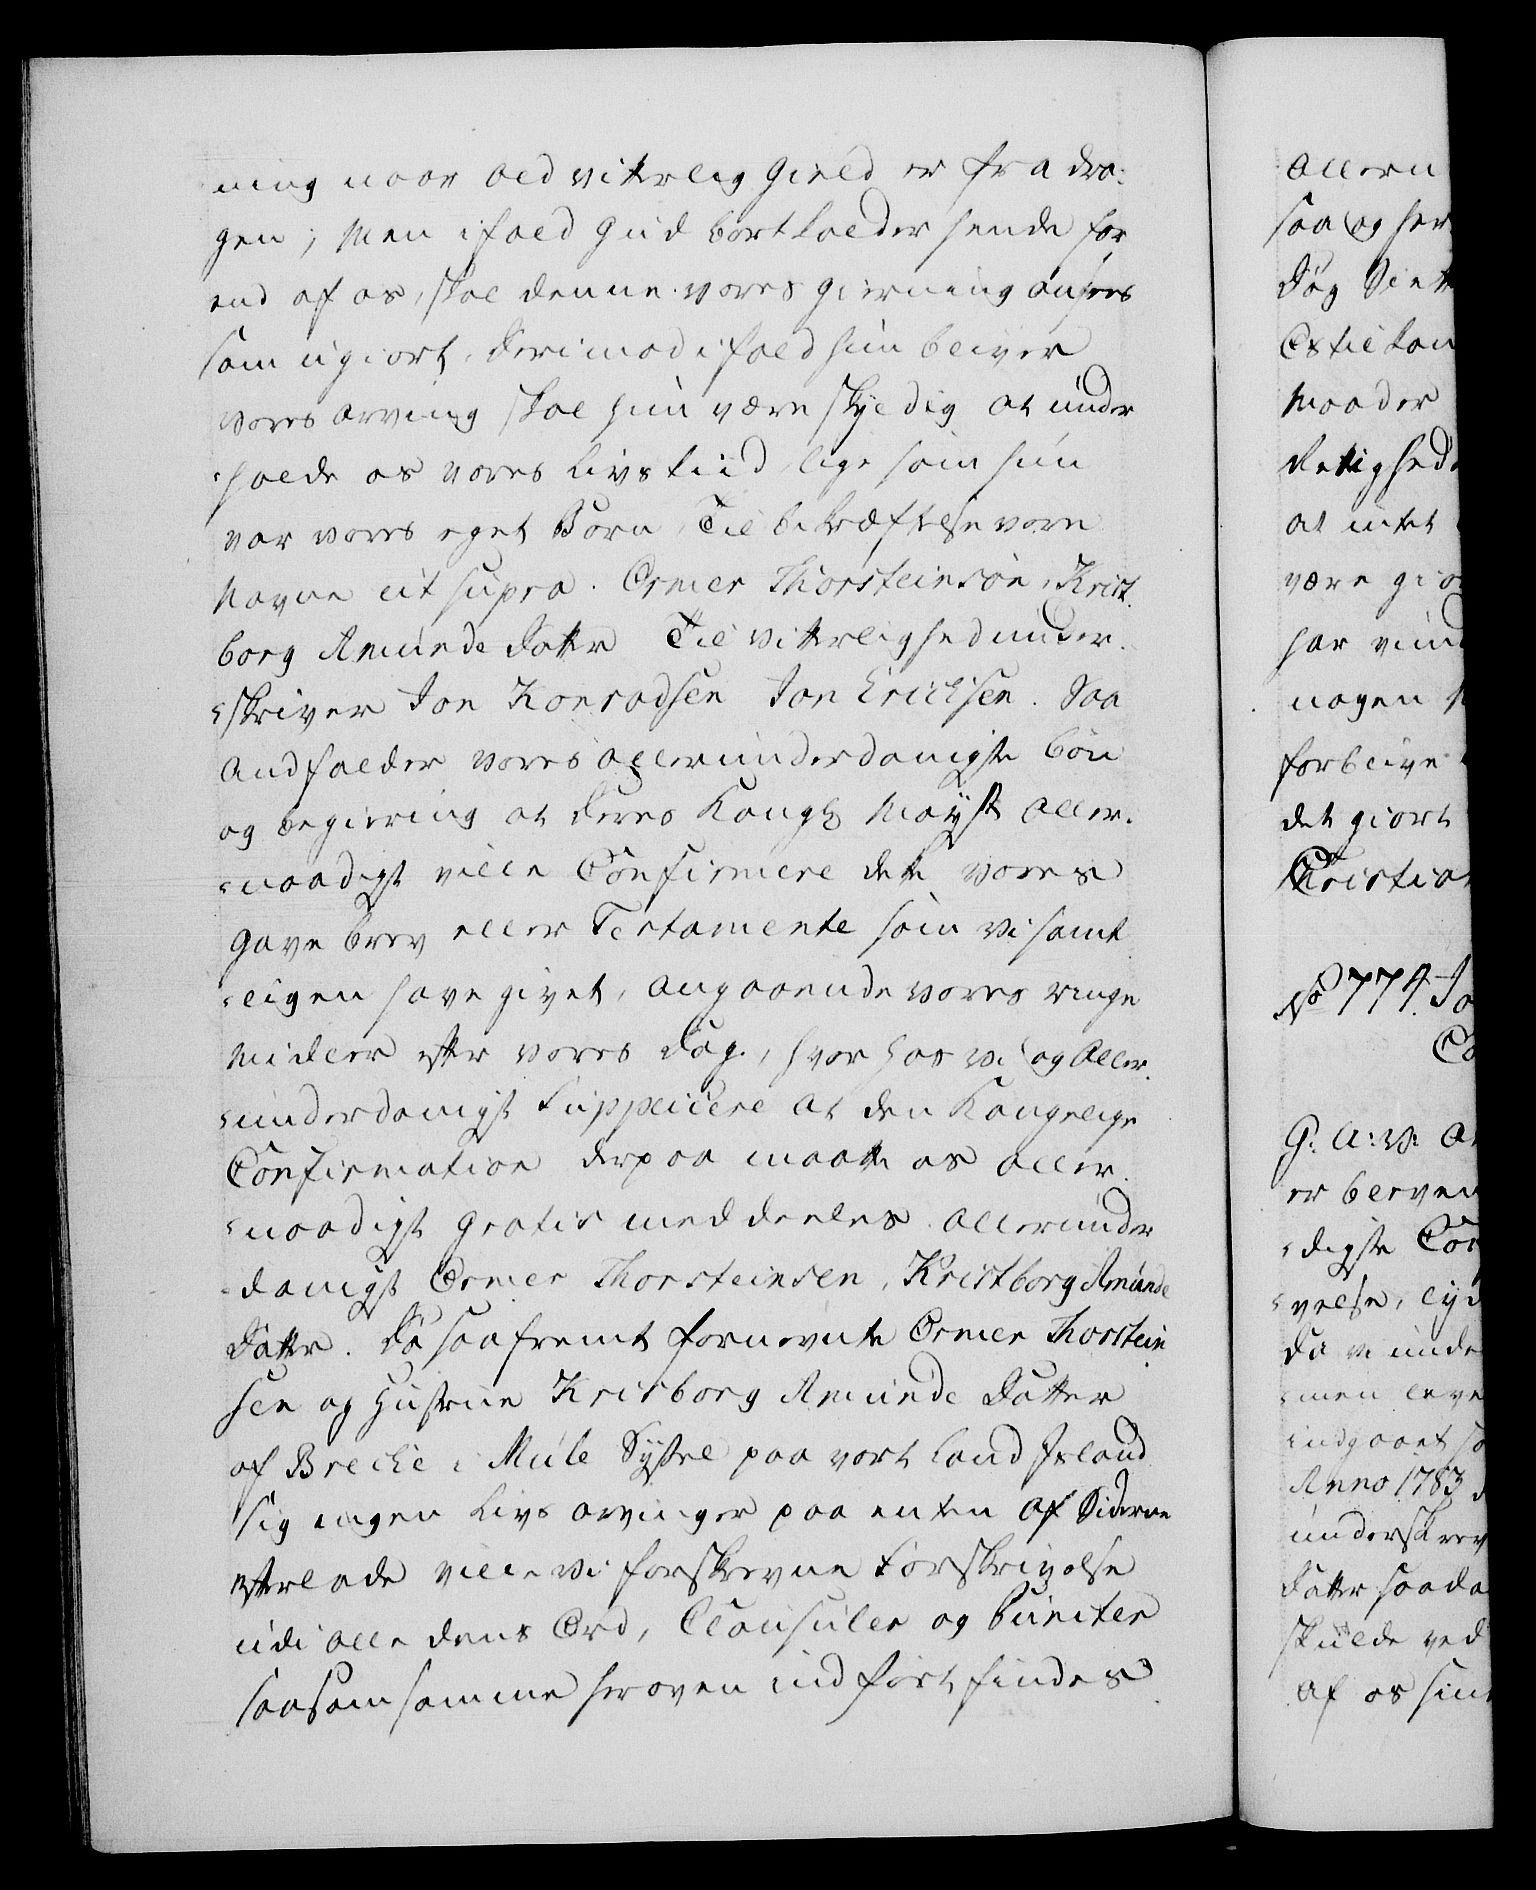 ning naar ald vitterlig Gield er fra dra-
gen; Men ifald Gud bortkalder hende før
end af os, skal denne vores Gierning ansees
som ugiort, derimod ifald hun bliver
vores arving skal hun være skyldig at under
holde os vores Livs tiid, lige som hun
var vores eget Barn, Til bekræftelse vore
Navne ut supra. Ormer Thorsteinsøn, Krist-
borg Amunde datter Til vitterlighed under-
skriver Jon Konradsen Jon Erichsen. Saa
andholder vores allerunderdanigste bøn
og begiering at deres Kongl Mayst aller-
naadigst ville Confirmere dette vores
gave brev eller Testamente som vi samt
ligen have givet, angaaende vores ringe
Midler efter vores dage, hvor hos vi og Aller-
underdanigst Suppliciere at den Kongelige
Confirmation derpaa maatte os aller-
naadigst gratis meddeeles. Allerunder
danigst Ormer Thorsteinsen, Kristborg Amunde
datter. Da saafremt fornevnte Ormer Thorstein
sen og Hustrue Krisborg Amunde datter
af Breche i Mule Syssel paa vort Land Island
sig ingen Livs arvinger paa enten af Siderne
efterlade ville vi forskrevne Forskrivelse
udi alle dens Ord, Clausuler og Puncter
saasom samme her oven indført findes
allern
saa og her
dog Viet
Os til kom
Maader
Retighed
at intet
være gior
har vund
nogen
forblive
det giort
Christian
No 774. Jo
Co
G: A: V: at
er bleven
digste Con
velse, lyd
da vi unde
men leve
indgaaet sa
Anno 1783 d
underskrev
datter saada
skulde ved
af os sin